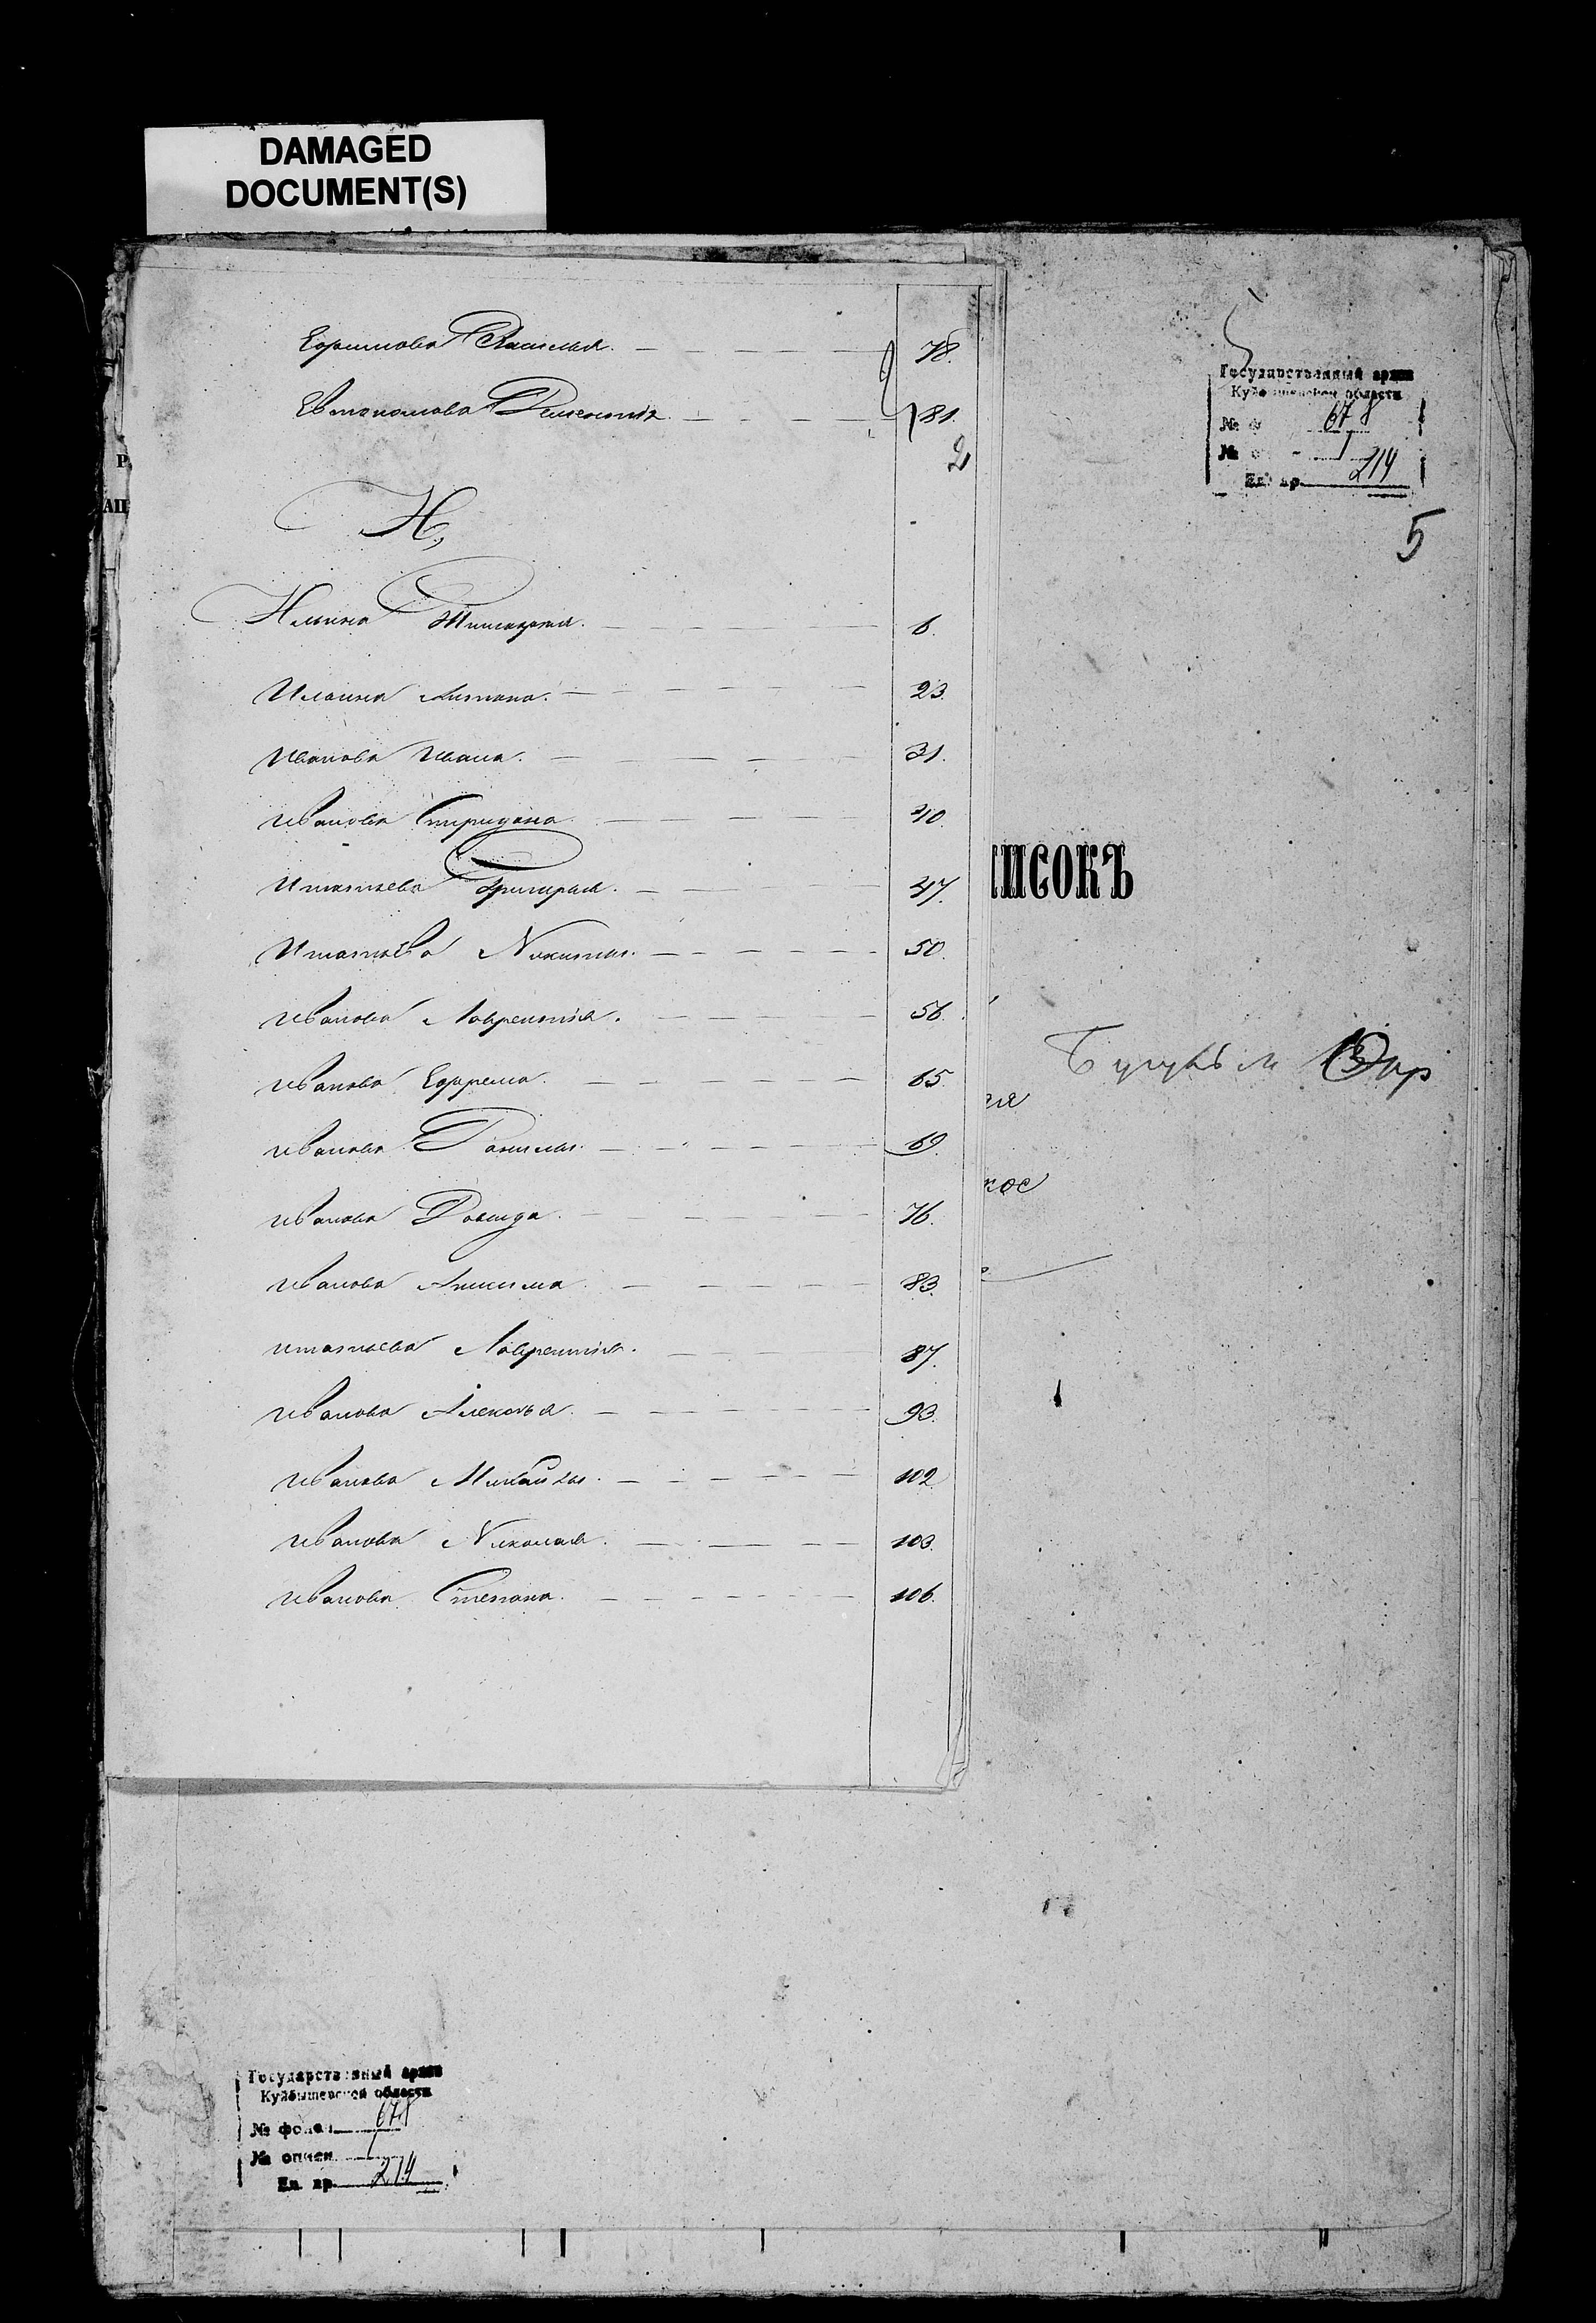 DAMAGED
DOCUMENT(S)
Ефимова Василья. 78.
Евтокимова Дементія 81.
2
И,
Ильина Тимофея. 6.
Ильина Антона. 23.
Иванова Ивана. 31.
Иванова Спиридона 40.
Игнатьева Григорья. 47.
Игнатьева Никиты. 50.
Иванова Лаврентія. 56.
Иванова Ефрема. 65.
Иванова Данилы. 69.
Иванова Давида. 76.
Иванова Анисима 83.
Игнатьева Лаврентія. 87.
Иванова Алексѣя. 93.
Иванова Михайлы. 102
Иванова Николая. 103.
Иванова Степана. 106.
Государственный архив
Куйбышевской области
№ ф 678
№ о 1
Ед. хр. 214
5
ИСОКЪ
ая
кое
Государственный архив
Куйбышевской области
№ фонда 678
№ описи 1
Ед. хр. 214